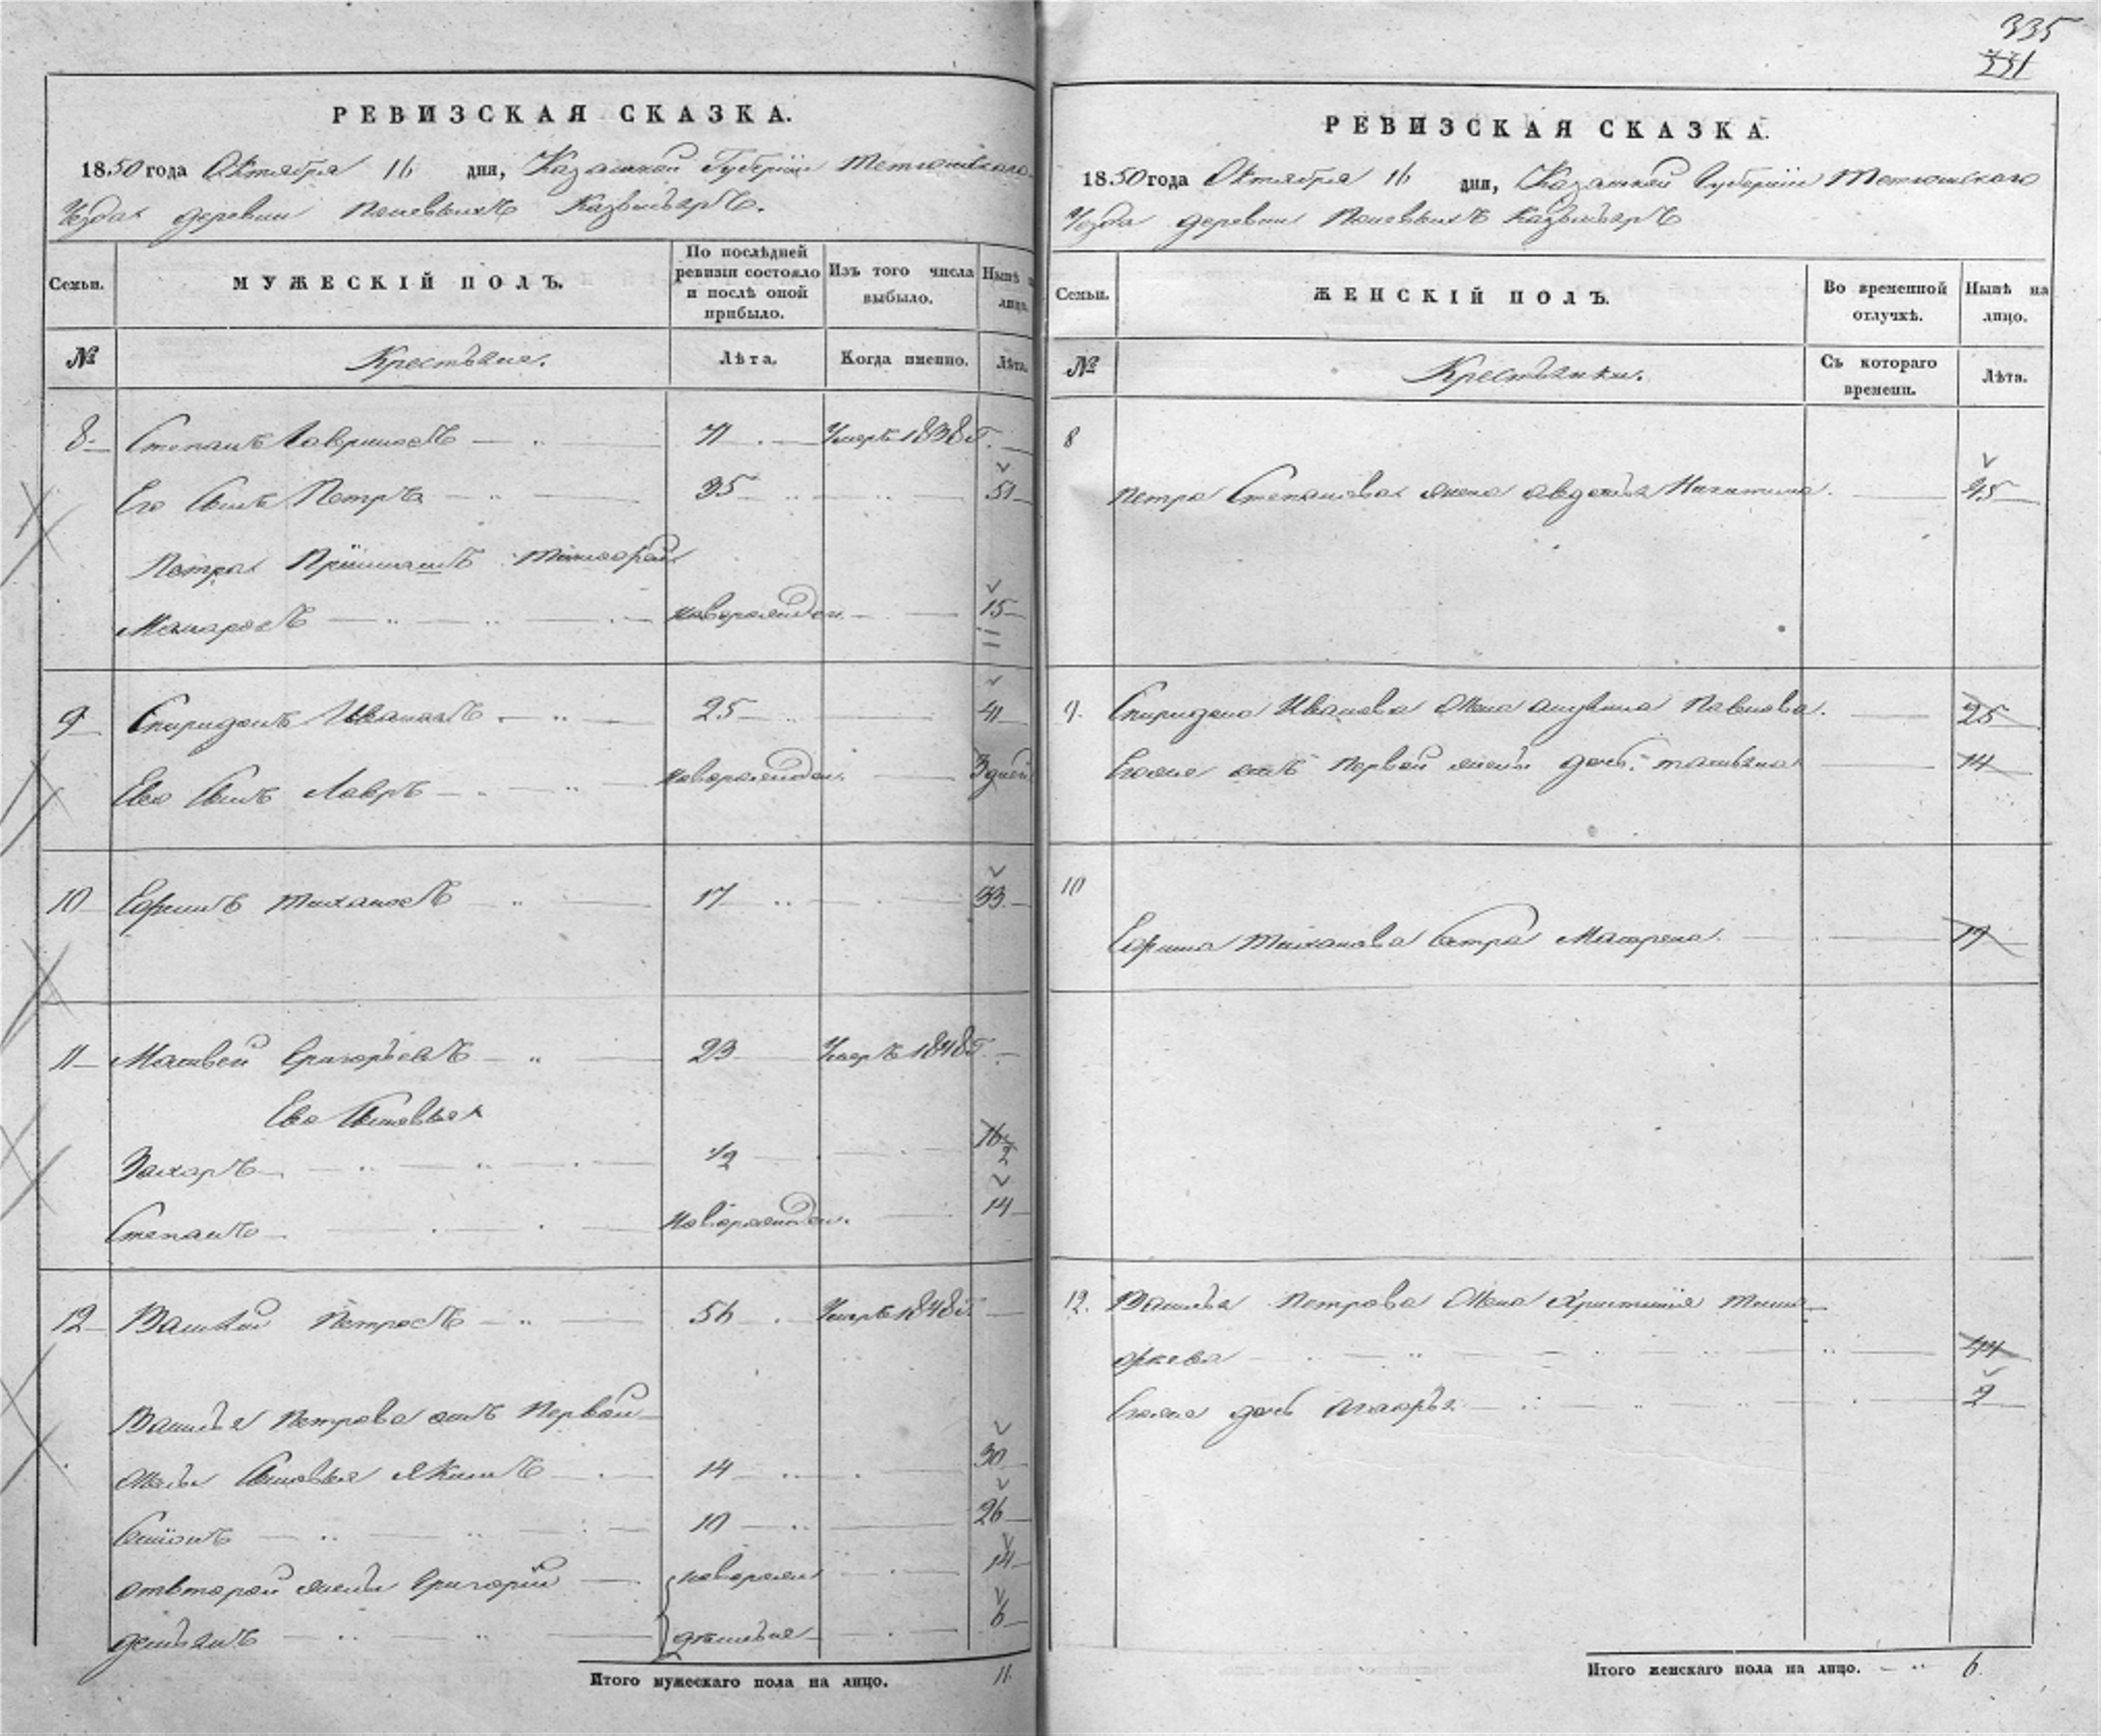 335
231
РЕВИЗСКАЯ СКАЗКА.
1850 года Октября 16 дня, Казанской Губернїи Тетюшскаго
Уезда деревни
МУЖЕСКІЙ ПОЛЪ.
Семьи.
По послѣдней ревизіи состояло и послѣ оной прибыло.
Изъ того числа выбыло.
Нынѣ на лицо.
№
Крестьяне.
Лѣта.
Когда именно.
Лѣта.
8 Степанъ Гавриловъ 71 Умеръ 1838 г.
Его Сынъ Петръ 35 51
Петра Прїимышъ Тимофей
Макаровъ новорожден. 15
9 Спиридонъ Ивановъ 25 41
Ево Сынъ Лавръ новорожден. 3 дней
10 Ефимъ Тихановъ 17 33
11 Матвей Григорьевъ 23 Умеръ 1848 г.
Ево Сыновья
Захаръ 1/2 16 1/2
Степанъ новорожден. 14
12 Василей Петровъ 56 Умеръ 1848 г.
Василья Петрова отъ Первой
жены Сыновья Якимъ 14 30
Семїонъ 10 26
отвторой жены Григорїй новорож 14
Демьянъ денныя 6
Итого мужескаго пола на лицо. 11.
РЕВИЗСКАЯ СКАЗКА.
1850 года Октября 16 дня, Казанской Губернїи Тетюшскаго
Уезда деревни
Семьи.
ЖЕНСКІЙ ПОЛЪ.
Во временной отлучкѣ.
Нынѣ на лицо.
№
Крестьянки.
Съ котораго времени.
Лѣта.
8
Петра Степанова жена Авдотья Никитина. 45
9. Спиридона Иванова Жена Акулина Павлова. 25
Егоже отъ первой жены дочь Татьяна 14
10
Ефима Тиханова Сестра Матрена. 17
12. Василья Петрова Жена Христинїя Тимо
феева 44
Егоже дочь 2
Итого женскаго пола на лицо. 6